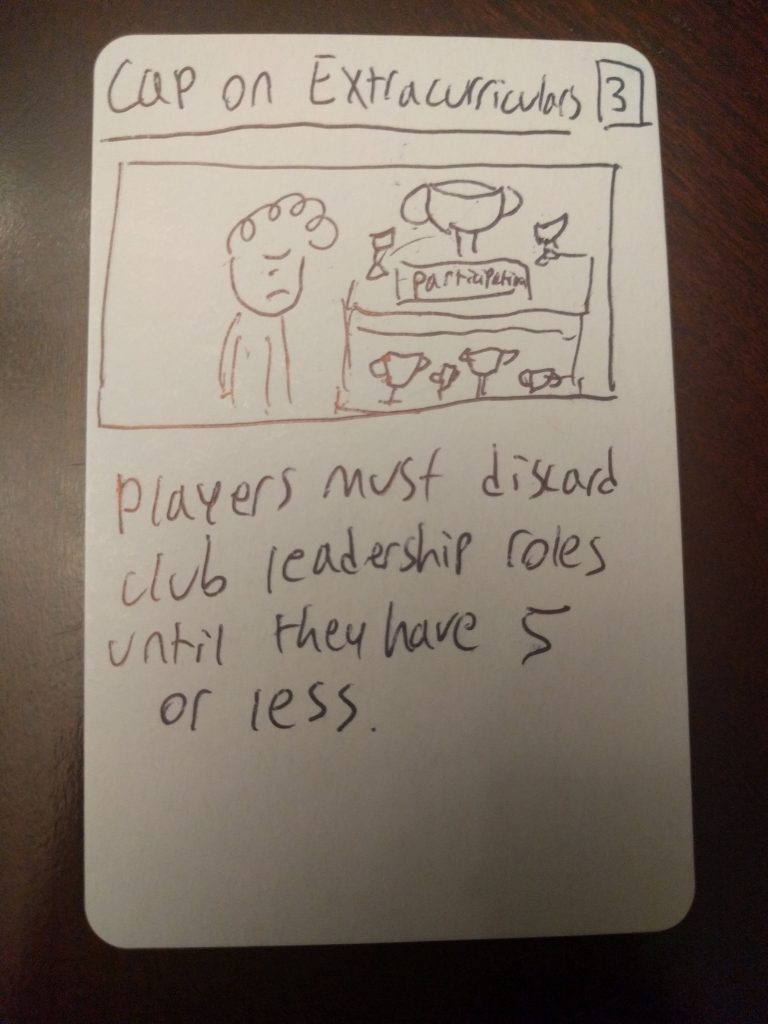 Cap on Extracurriculars 3
participation
Players must discard
club leadership roles
until they have 5
or less.